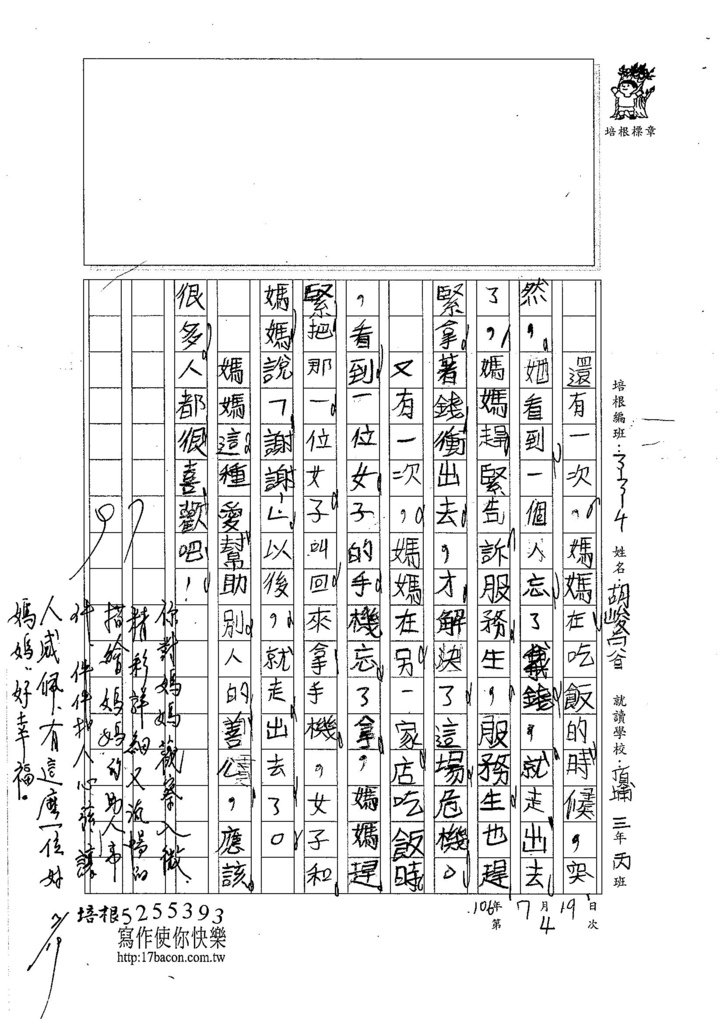 培根標章
培根編班：3374 姓名：胡峻 就讀學校： 三年丙班
106年7月19日
第4次
還有一次，媽媽在吃飯的時候，突
然，她看到一個人忘了拿錢，就走出去
了，媽媽趕緊告訴服務生，服務生也趕
緊拿著錢衝出去，才解決了這場危機。
又有一次，媽媽在另一家店吃飯時
，看到一位女子的手機忘了拿，媽媽趕
緊把那一位女子叫回來拿手機，女子和
媽媽說「謝謝！」以後，就走出去了。
媽媽這種愛幫助別人的善心，應該
很多人都很喜歡吧！
97
你對媽媽觀察入微
精彩詳細又流暢的
描繪媽媽的助人事
件，件件扣人心弦，讓
人感佩。有這麼一位好
媽媽，好幸福。
7/19
培根5255393
寫作使你快樂
http:17bacon.com.tw